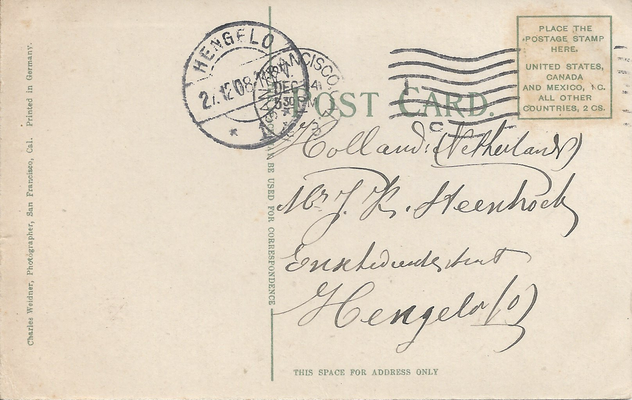 Charles Weidner, Photographer, San Francisco, Cal. Printed in Germany.
HENGELO
27.12.08
FRANCISCO,
DEC 14
5 30 PM
POST CARD.
PLACE THE
POSTAGE STAMP
HERE.
UNITED STATES,
CANADA
AND MEXICO, 1 C.
ALL OTHER
COUNTRIES, 2 CS.
MAY BE USED FOR CORRESPONDENCE
Holland: (Netherlands)
Mr. J. K. Steenhock
Enschedeschestraat
Hengelo (O)
THIS SPACE FOR ADDRESS ONLY